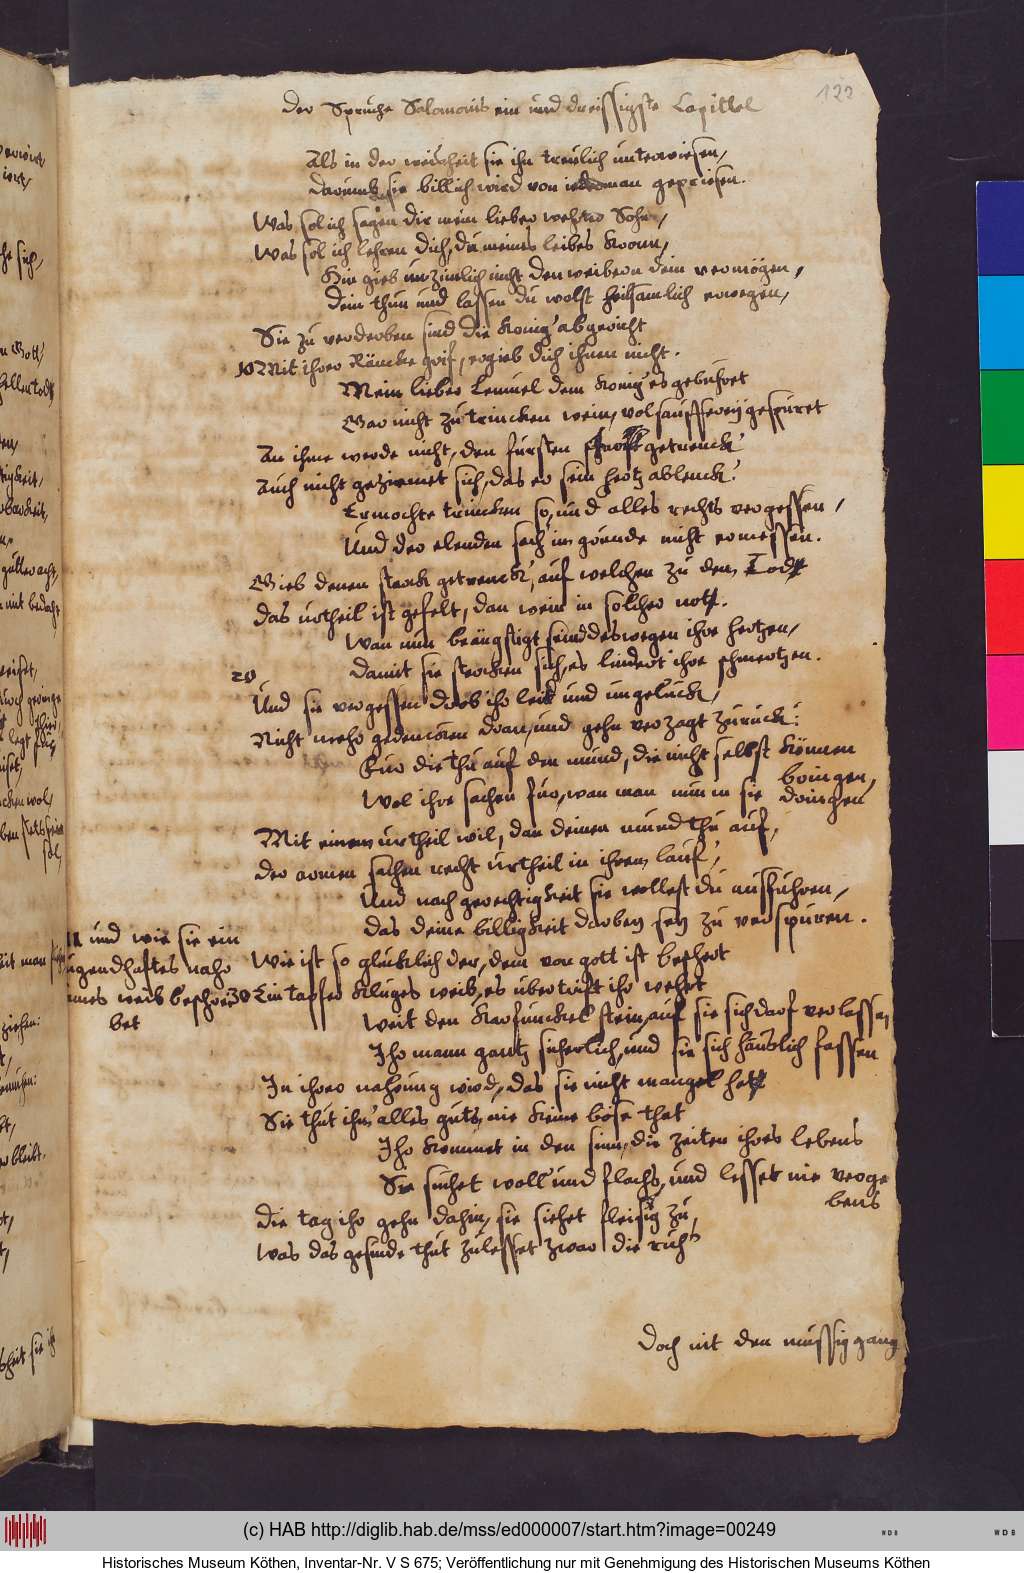 122
Der Spruche Salomonis ein und dreissigste Capittel
Als in der weisheit sie ihn treulich unterwiesen,
Darumb sie billich wird von iederman gepriesen.
Was sol ich sagen dir mein lieber wehrter Sohn,
Was sol ich lehren dich, du meines leibes Kron,
Hin gieb unzimlich nicht den weibern dein vermögen,
Dein thun und lassen du wolst heilsamlich erwegen,
Sie zu verderben sind die König' abgericht
10 Mit ihrer Räncke grif, ergieb dich ihnen nicht.
Mein lieber Lemuel dem König' es gebuhret
Gar nicht zu trincken wein, vol saufferey gespuret
An ihme werde nicht, den fursten starck getrenck'
Auch nicht geziemet sich, das er sein hertz ablenck'.
Er mochte trincken so, und alles rechts vergessen,
Und der elenden sach' im grunde nicht ermessen.
Gieb denen starck getrenck', auf welchen zu dem Tod
Das urtheil ist gefelt, dan wein in solcher not.
Wan nun beängstigt seind deswegen ihre hertzen,
Damit sie stercken sich, es lindert ihre schmertzen.
20
Und sie vergessen drob ihr leid und ungeluck,
Nicht mehr gedencken dran, und gehn verzagt zuruck:
Fur die thu auf den mund, die nicht selbst können bringen,
Wol ihre sachen fur, wan man nun in sie dringen
Mit einem urtheil wil, dan deinen mund thu auf,
Der armen sachen recht urtheil in ihrem lauf,
Und nach gerechtigkeit sie wollest du ausfuhren,
Das deine billigkeit darbey sey zu verspuren.
und wie sie ein
tugendhaftes nahr
weib beschrei
bet
Wie ist so glucklich der, dem von gott ist beschert
30 Ein tapfer kluges weib, es ubertrift ihr wehrt
Weit den Karfunckel stein, auf sie sich darf verlassen,
Ihr mann gantz sicherlich, und sie sich häuslich fassen
In ihrer nahrung wird, das sie nicht mangel hat
Sie thut ihm alles guts, nie keine böse that
Ihr kommet in den sinn, die zeiten ihres lebens
Sie suchet woll' und flachs, und lesset nie verge
bens
Die tag ihr gehn dahin, sie siehet fleisig zu,
Was das gesinde thut zulesset zwar die ruh
Doch nit den mussig gang
(c) HAB http://diglib.hab.de/mss/ed000007/start.htm?image=00249
WDB
WDB
Historisches Museum Köthen, Inventar-Nr. V S 675; Veröffentlichung nur mit Genehmigung des Historischen Museums Köthen